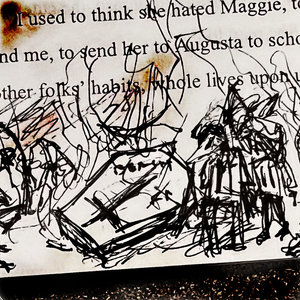 I used to think she hated Maggie, to
nd me, to send her to Augusta to scho
other folks' habits, whole lives upon